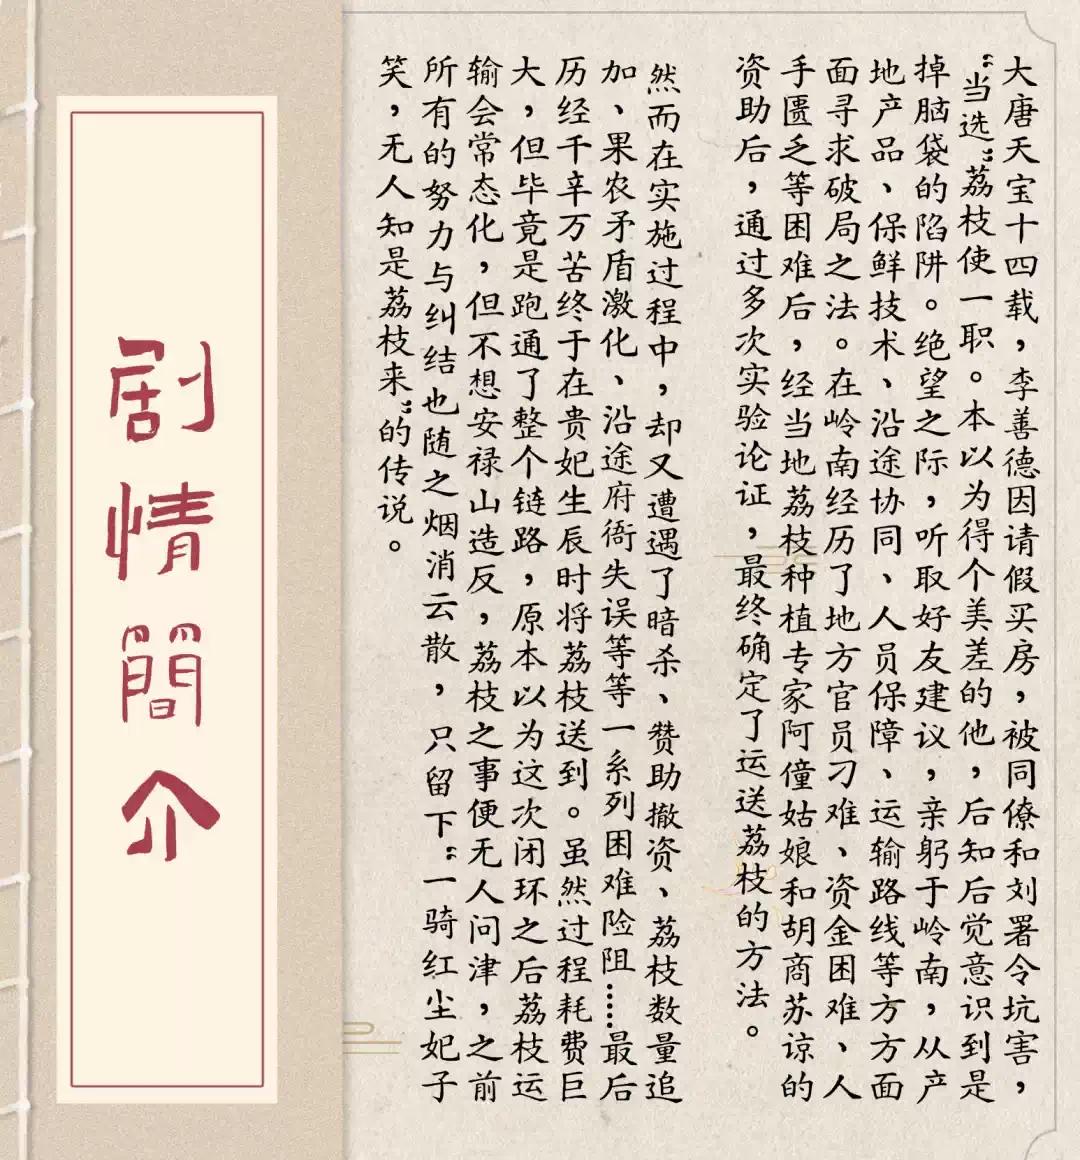 剧情簡介
大唐天宝十四载，李善德因请假买房，被同僚和刘署令坑害，
“当选”荔枝使一职。本以为得个美差的他，后知后觉意识到是
掉脑袋的陷阱。绝望之际，听取好友建议，亲躬于岭南，从产
地产品、保鲜技术、沿途协同、人员保障、运输路线等方方面
面寻求破局之法。在岭南经历了地方官员刁难、资金困难、人
手匮乏等困难后，经当地荔枝种植专家阿僮姑娘和胡商苏谅的
资助后，通过多次实验论证，最终确定了运送荔枝的方法。
然而在实施过程中，却又遭遇了暗杀、赞助撤资、荔枝数量追
加、果农矛盾激化、沿途府衙失误等等一系列困难险阻……最后
历经千辛万苦终于在贵妃生辰时将荔枝送到。虽然过程耗费巨
大，但毕竟是跑通了整个链路，原本以为这次闭环之后荔枝运
输会常态化，但不想安禄山造反，荔枝之事便无人问津，之前
所有的努力与纠结也随之烟消云散，只留下“一骑红尘妃子
笑，无人知是荔枝来”的传说。